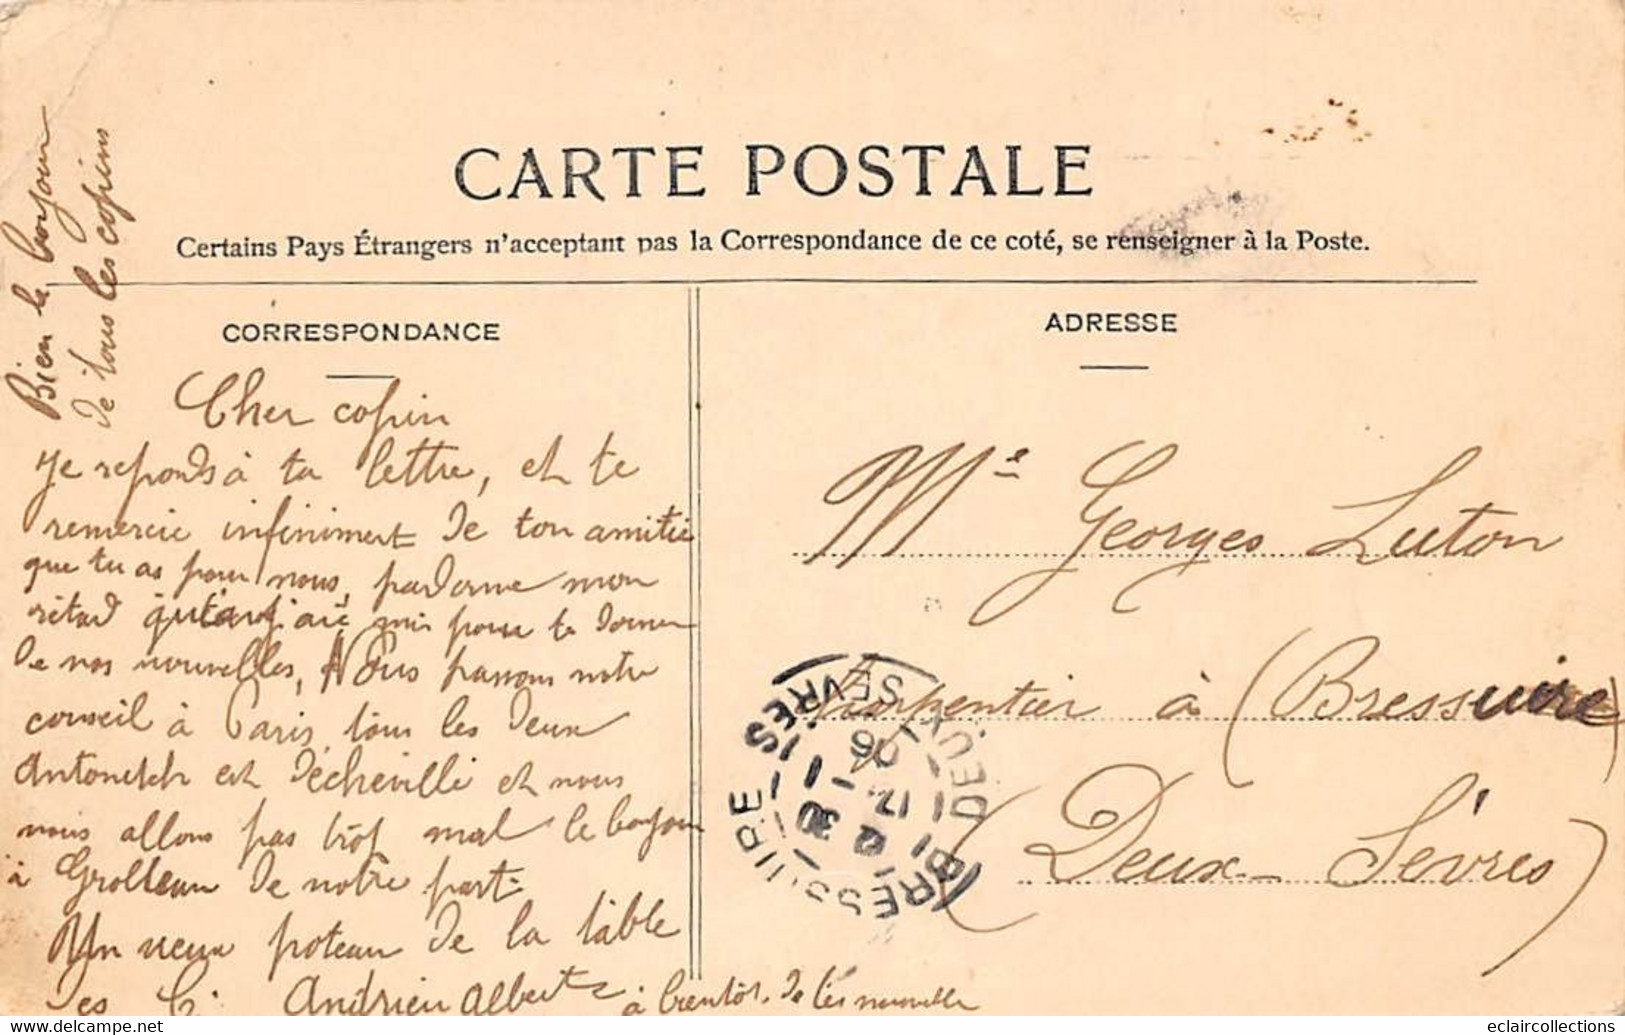 CARTE POSTALE
Certains Pays Étrangers n'acceptant pas la Correspondance de ce coté, se renseigner à la Poste.
CORRESPONDANCE
ADRESSE
Bien le bonjour
de tous les copins
Cher copin
Je reponds à ta lettre, et te
remercie infiniment de ton amitié
que tu as pour nous, pardonne mon
retard mis pour te donner
de nos nouvelles, Nous passons notre
conseil à Paris tous les deux
et nous
nous allons pas trop mal le bonjour
à Grolleau de notre part
Un vieux poteau de la table
des C. Andrieu Albert à bientôt. de tes nouvelle
Mr Georges Luton
Charpentier à (Bressuire)
(Deux-Sèvres)
BRESSUIRE
DEUX-SEVRES
17 - 1
06
eclaircollections @ Delcampe.net